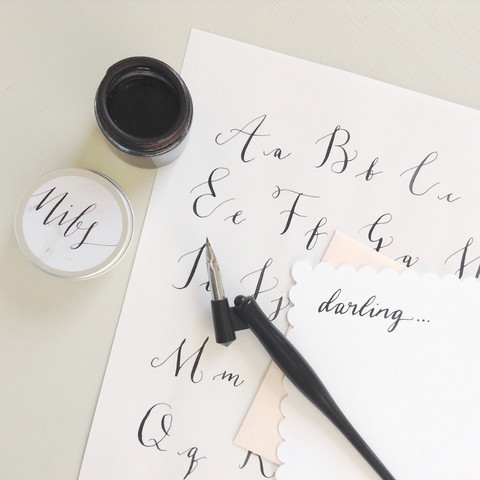 Nibs
Aa Bb Cc
Ee Ff Ga
Mm
Qq
darling...